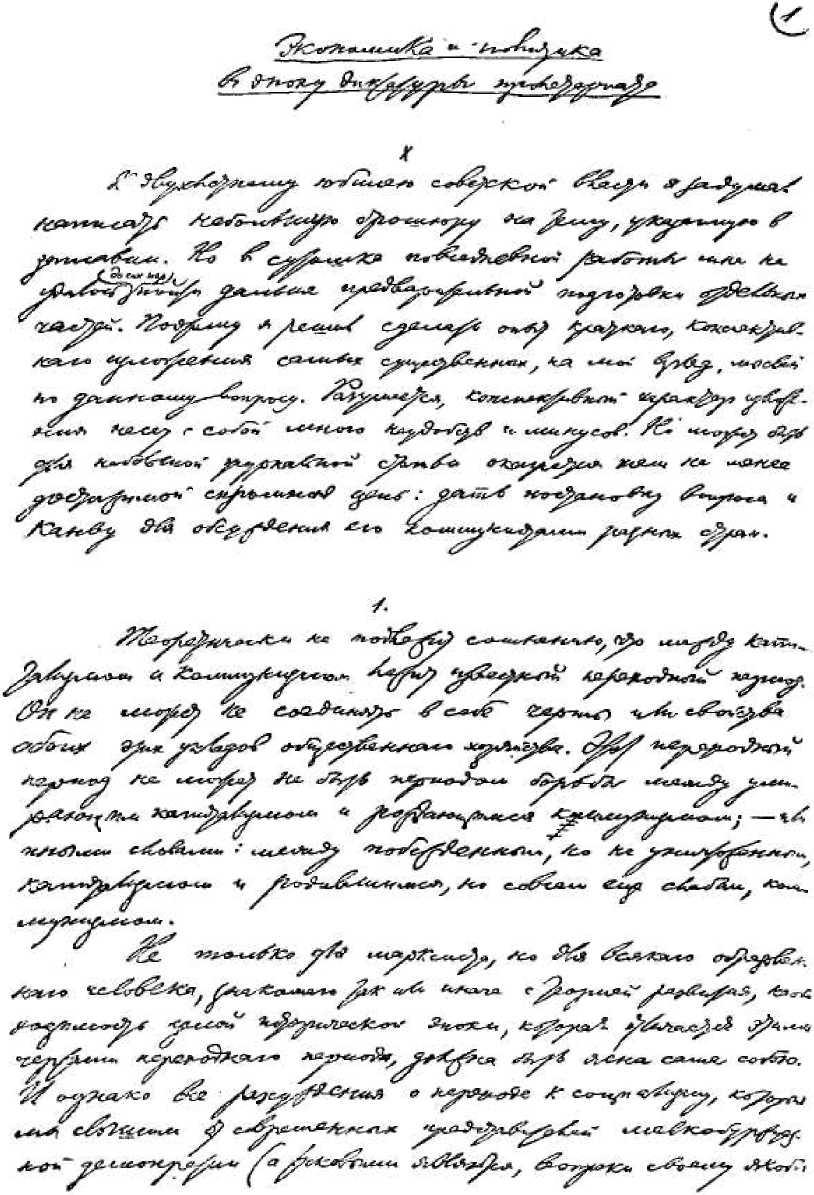 1
Экономика и политика
в эпоху диктатуры пролетариата
К двухлетнему юбилею советской власти я задумал
написать небольшую брошюру на тему, указанную в
заглавии. Но в сутолоке повседневной работы мне не
удалось до сих пор пойти дальше предварительной подготовки отдельных
частей. Поэтому я решил сделать опыт краткого, конспектив-
ного изложения самых существенных, на мой взгляд, мыслей
по данному вопросу. Разумеется, конспективный характер изложе-
ния несет с собой много неудобств и минусов. Но может быть
для небольшой журнальной статьи окажется тем не менее
достижимой скромная цель: дать постановку вопроса и
канву для обсуждения его коммунистами разных стран.
1.
Теоретически не подлежит сомнению, что между капи-
тализмом и коммунизмом лежит известный переходный период.
Он не может не соединять в себе черты или свойства
обоих этих укладов общественного хозяйства. Этот переходный
период не может не быть периодом борьбы между уми-
рающим капитализмом и рождающимся коммунизмом; — или
иными словами: между побежденным, но не уничтоженным,
капитализмом и родившимся, но совсем еще слабым, ком-
мунизмом.
Не только для марксиста, но для всякого образован-
ного человека, знакомого так или иначе с теорией развития, необ-
ходимость целой исторической эпохи, которая отличается этими
чертами переходного периода, должна быть ясна сама собою.
И однако все рассуждения о переходе к социализму, которые
мы слышим от современных представителей мелкобуржуаз-
ной демократии (а таковыми являются, вопреки своему якобы